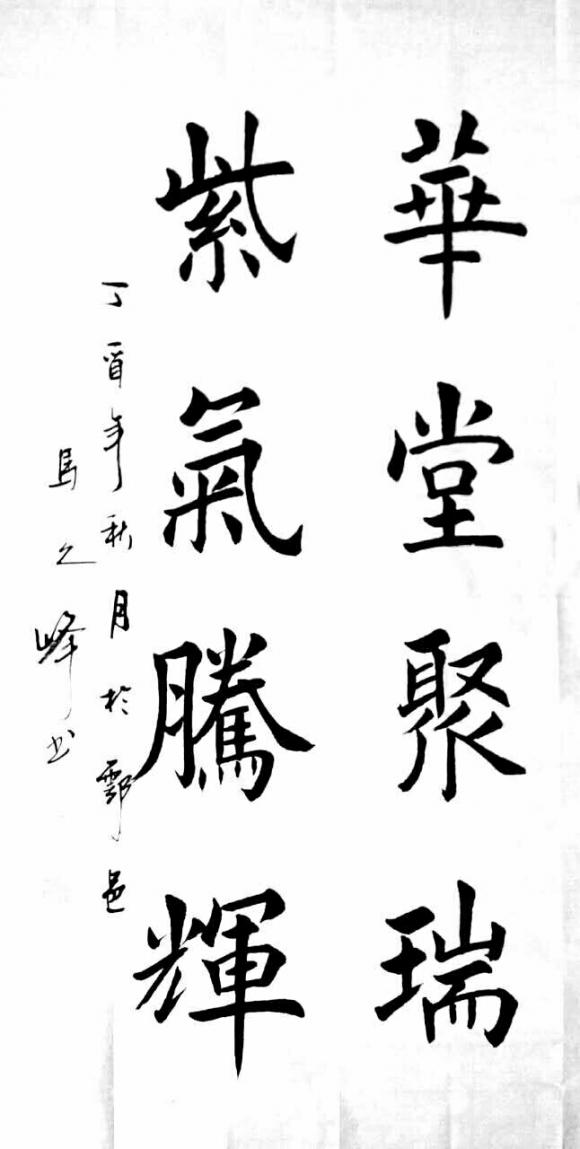 華堂聚瑞
紫氣騰輝
丁酉年秋月於鄠邑
馬之峰书